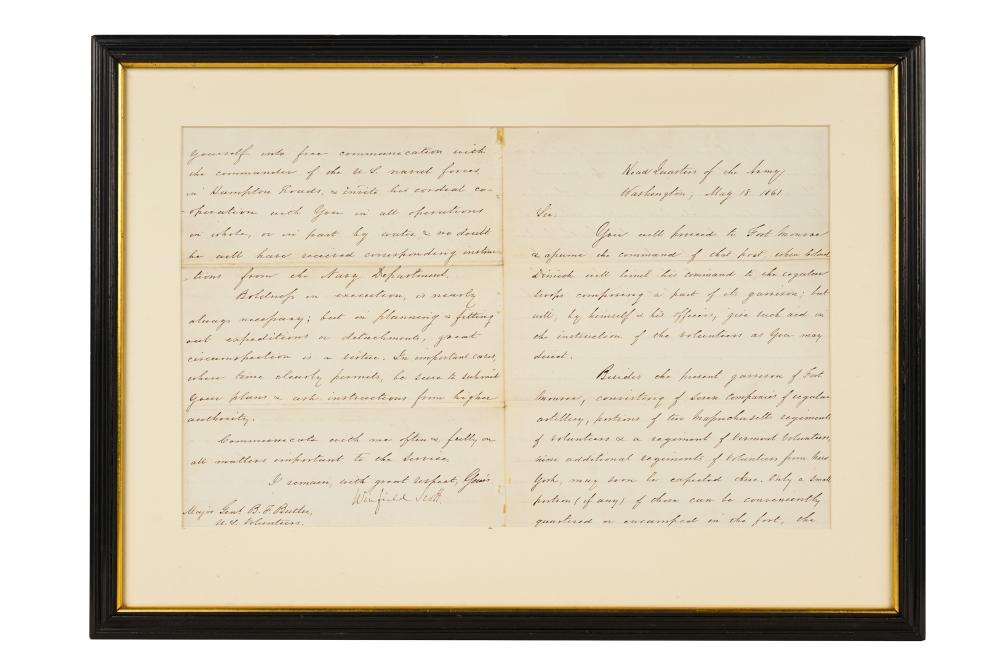 Head Quarters of the Army
Washington, May 18. 1861
Sir.
You will proceed to Fort Monroe
& assume the command of that post, when Colonel
Dimick will limit his command to the regular
troops composing a part of its garrison; but
will, by himself & his officers, give such aid in
the instruction of the volunteers as You may
direct.
Besides the present garrison of Fort
Monroe, consisting of seven companies of regular
artillery, portions of two Massachusetts regiments
of volunteers & a regiment of Vermont Volunteers,
nine additional regiments of Volunteers from New
York, may soon be expected there. Only a small
portion (if any) of these can be conveniently
quartered or encamped in the fort, the
yourself into free communication with
the commander of the U.S. naval forces
in Hampton Roads, & invite his cordial co-
-operation with You in all operations
in whole, or in part by water & no doubt
he will have received corresponding instruc-
-tions from the Navy Department.
Boldness in execution, is nearly
always necessary; but in planning & fitting
out expeditions or detachments, great
circumspection is a virtue. In important cases,
where time clearly permits, be sure to submit
Your plans & ask instructions from higher
authority.
Communicate with me often & fully on
all matters important to the Service.
I remain, with great respect, Yours.
Winfield Scott.
Major Genl. B. F. Butler,
U.S. Volunteers.